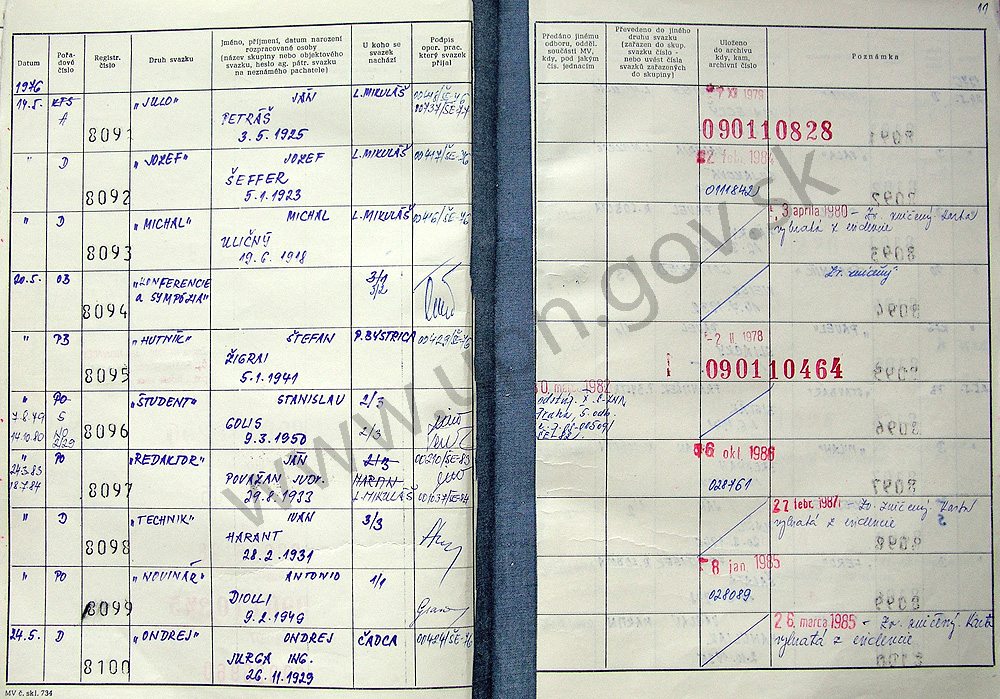 11
Datum
Pořadové číslo
Registr. číslo
Druh svazku
Jméno, příjmení, datum narození rozpracované osoby (název skupiny nebo objektového svazku, heslo ag. pátr. svazku na neznámého pachatele)
U koho se svazek nachází
Podpis oper. prac. který svazek přijal
Předáno jinému odboru, odděl. součásti MV, kdy, pod jakým čís. jednacím
Převedeno do jiného druhu svazku (zařazen do skup. svazku číslo - nebo uvést čísla svazků zařazených do skupiny)
Uloženo do archivu kdy, kam, archivní číslo
Poznámka
1976
14.5. KFS A 8091 "JULO" JÁN L. MIKULÁŠ
PETRÁŠ 00737/ŠE-77
3.5.1925
XII 1978
090110828
" D 8092 "JOZEF" JOZEF L. MIKULÁŠ 00417/ŠE-76
ŠEFFER
5.1.1923
22 feb. 1984
0111842
" D 8093 "MICHAL" MICHAL L. MIKULÁŠ 00416/ŠE-76
ULIČNÝ
19.6.1918
3 apríla 1980 - Zv. zničený karta
vybratá z evidencie
20.5. OB 8094 "KONFERENCIE a SYMPÓZIA" 3/1
3/2
Zv. zničený
" PB 8095 "HUTNÍK" ŠTEFAN P. BYSTRICA 00429/ŠE-76
ŽIGRAI
5.1.1941
-2 II. 1978
090110464
" PO 8096 "ŠTUDENT" STANISLAV 2/3
7.8.79 S GOLIS
14.10.80 NO 2/29 9.3.1950 2/3
Praha, 5. odb.
" PO 8097 "REDAKTOR" JÁN 2/3 00210/ŠE-83
24.3.83 POVAŽAN JUDr.
18.7.84 29.8.1933 L. MIKULÁŠ 001037/ŠE-84
16 okt. 1986
028761
" D 8098 "TECHNIK" IVAN 3/3
HARANT
28.2.1931
27 febr. 1987 - Zv. zničený. Karta
vybratá z evidencie
" PO 8099 "NOVINÁŘ" ANTONIO 1/1
DIOLLI
9.2.1949
8 jan. 1985
028089
24.5. D 8100 "ONDREJ" ONDREJ ČADCA 00424/ŠE-76
JURGA ING.
26.11.1929
26. marca 1985 - Zv. zničený. Karta
vybratá z evidencie
MV č. skl. 734
www.upn.gov.sk